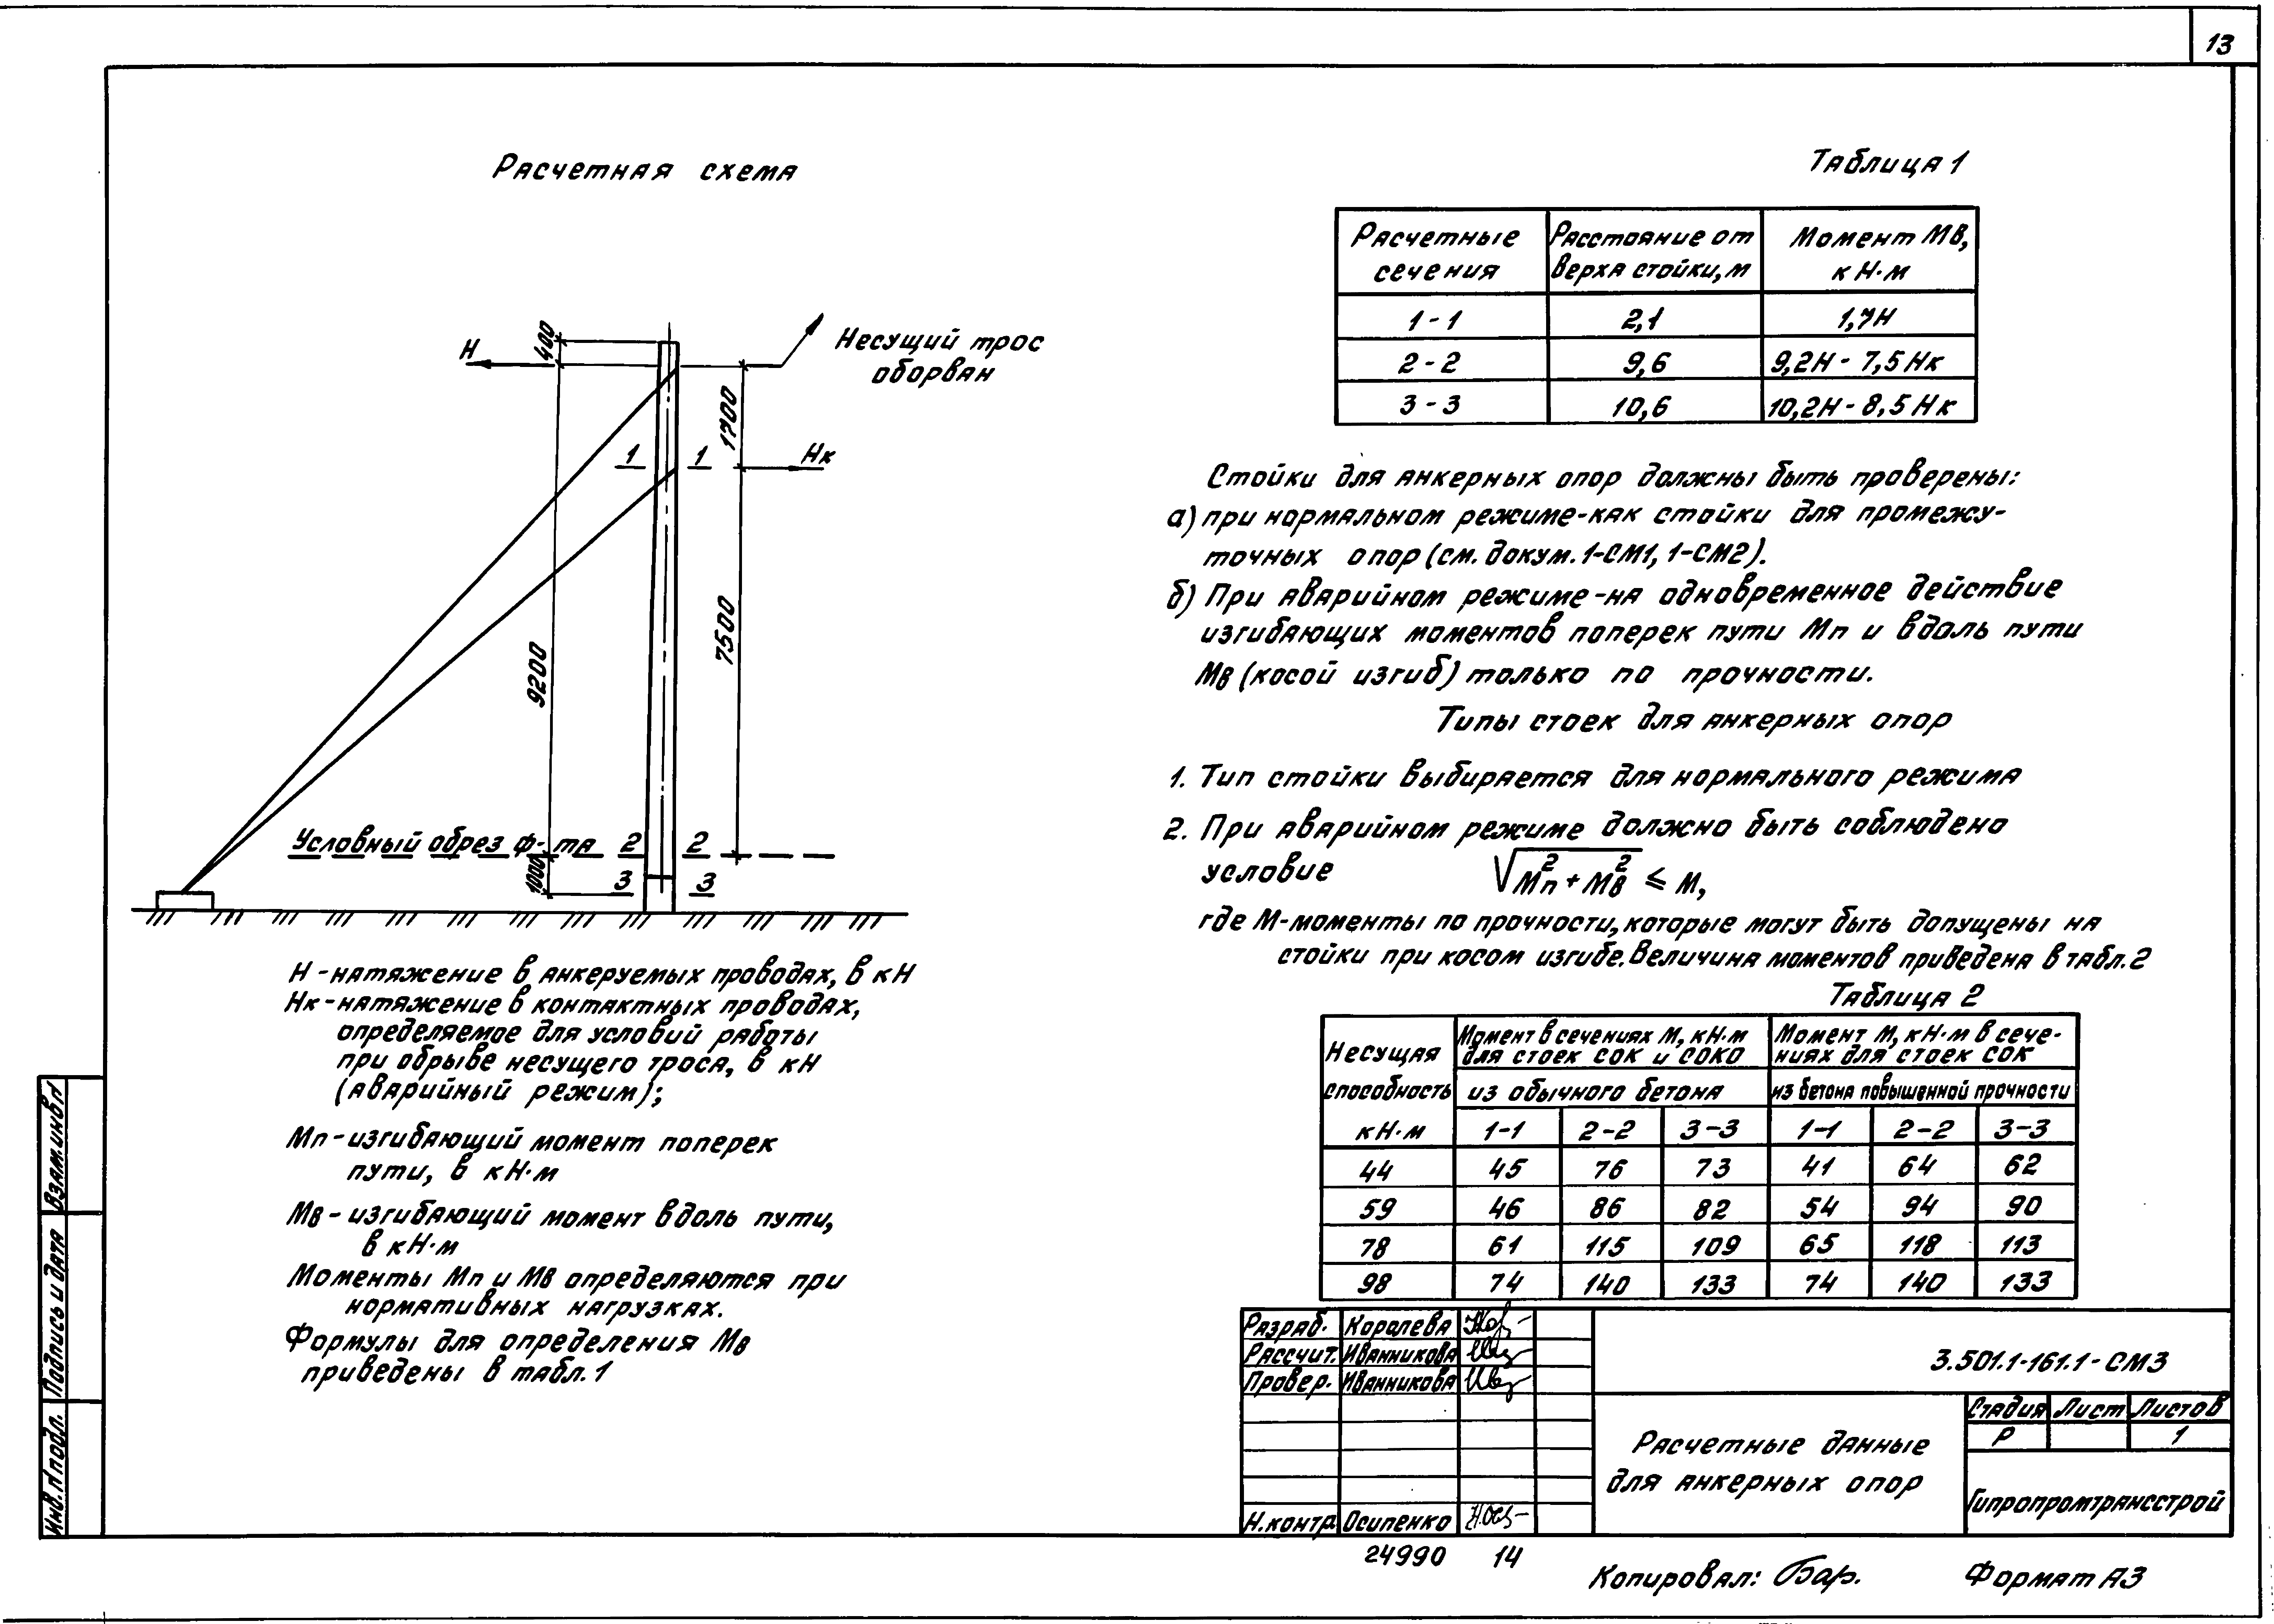 13
Расчетная схема
400
Н
Несущий трос
оборван
1700
1 1
Нк
9200
7500
Условный обрез ф-та 2 2
1000
3 3
Н - натяжение в анкеруемых проводах, в кН
Нк - натяжение в контактных проводах,
определяемое для условий работы
при обрыве несущего троса, в кН
(аварийный режим);
Мп - изгибающий момент поперек
пути, в кН·м
Мв - изгибающий момент вдоль пути,
в кН·м
Моменты Мп и Мв определяются при
нормативных нагрузках.
Формулы для определения Мв
приведены в табл. 1
Таблица 1
Расчетные сечения | Расстояние от верха стойки, м | Момент Мв, кН·м
1-1 | 2,1 | 1,7Н
2-2 | 9,6 | 9,2Н - 7,5Нк
3-3 | 10,6 | 10,2Н - 8,5Нк
Стойки для анкерных опор должны быть проверены:
а) при нормальном режиме-как стойки для промежу-
точных опор (см. докум. 1-СМ1, 1-СМ2).
б) При аварийном режиме-на одновременное действие
изгибающих моментов поперек пути Мп и вдоль пути
Мв (косой изгиб) только по прочности.
Типы стоек для анкерных опор
1. Тип стойки выбирается для нормального режима
2. При аварийном режиме должно быть соблюдено
условие √Мп² + Мв² ≤ М,
где М-моменты по прочности, которые могут быть допущены на
стойки при косом изгибе. Величина моментов приведена в табл. 2
Таблица 2
Несущая способность кН·м | Момент в сечениях М, кН·м для стоек СОК и СОКО из обычного бетона | Момент М, кН·м в сече-ниях для стоек СОК из бетона повышенной прочности
1-1 | 2-2 | 3-3 | 1-1 | 2-2 | 3-3
44 | 45 | 76 | 73 | 41 | 64 | 62
59 | 46 | 86 | 82 | 54 | 94 | 90
78 | 61 | 115 | 109 | 65 | 118 | 113
98 | 74 | 140 | 133 | 74 | 140 | 133
Разраб. Королева
Рассчит. Иванникова
Провер. Иванникова
Н.контр Осипенко
3.501.1-161.1-СМ3
Расчетные данные
для анкерных опор
Стадия Лист Листов
Р 1
Гипропромтрансстрой
Взам.инв.№
Подпись и дата
Инв.№подл.
24990 14
Копировал: Бар.
Формат А3